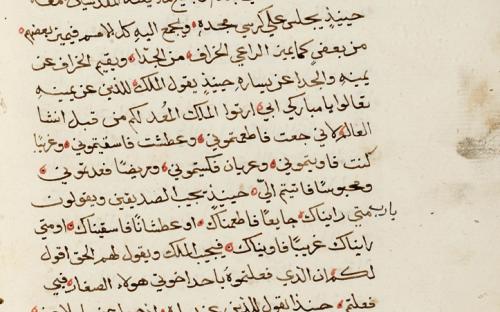 حينيذٍ يجلس علي كرسي مجدهِ ويجمع اليهِ كل الامم فيميز بعضهم
من بعضٍ كما يميز الراعي الخراف من الجدا ويقيم الخراف عن
يمينهِ والجدا عن يسارهِ حينيذٍ يقول الملك للذين عن يمينهِ
تعالوا يا مباركي ابي ارثوا الملك المُعد لكم من قبل انشا
العالم لاني جعت فاطعمتموني وعطشت فاسقيتموني وغريبًا
كنت فاويتموني وعريان فكسيتموني ومريضًا فعدتموني
ومحبوسًا فاتيتم اليَّ حينيذٍ يجيب الصديقين ويقولون
يارب متي رايناك جايعًا فاطعمناك او عطشانًا فاسقيناك او متي
رايناك غريبًا فاويناك فيجيب الملك ويقول لهم الحق اقول
لكم ان الذي فعلتموهُ باحد اخوتي هولاء الصغار فبي
فعلتم حينيذ يقول للذين عن يساره